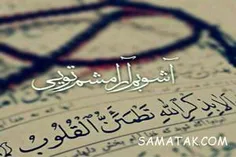 آشوبم آرامشم تویی
الا بذکر الله تطمئن القلوب
SAMATAK.COM